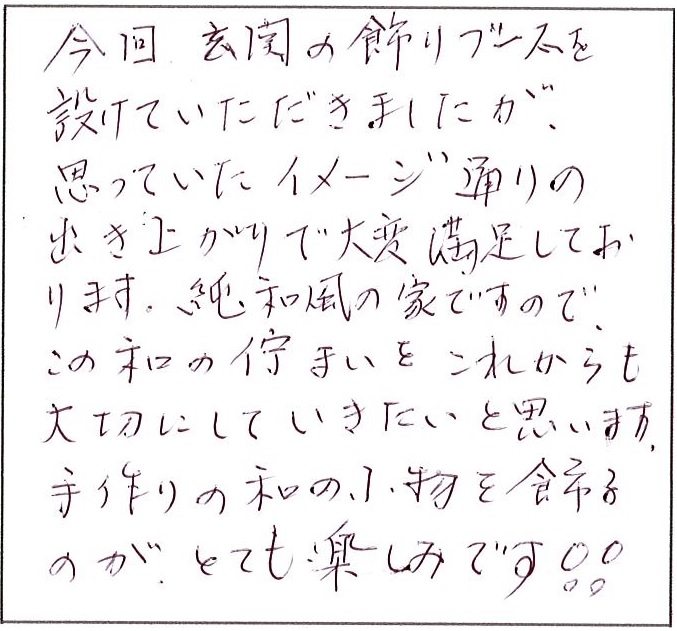 今回 玄関の飾りブースを
設けていただきましたが、
思っていたイメージ通りの
出き上がりで大変満足してお
ります。純和風の家ですので、
この和の佇まいをこれからも
大切にしていきたいと思います。
手作りの和の小物を飾る
のが、とても楽しみです!!